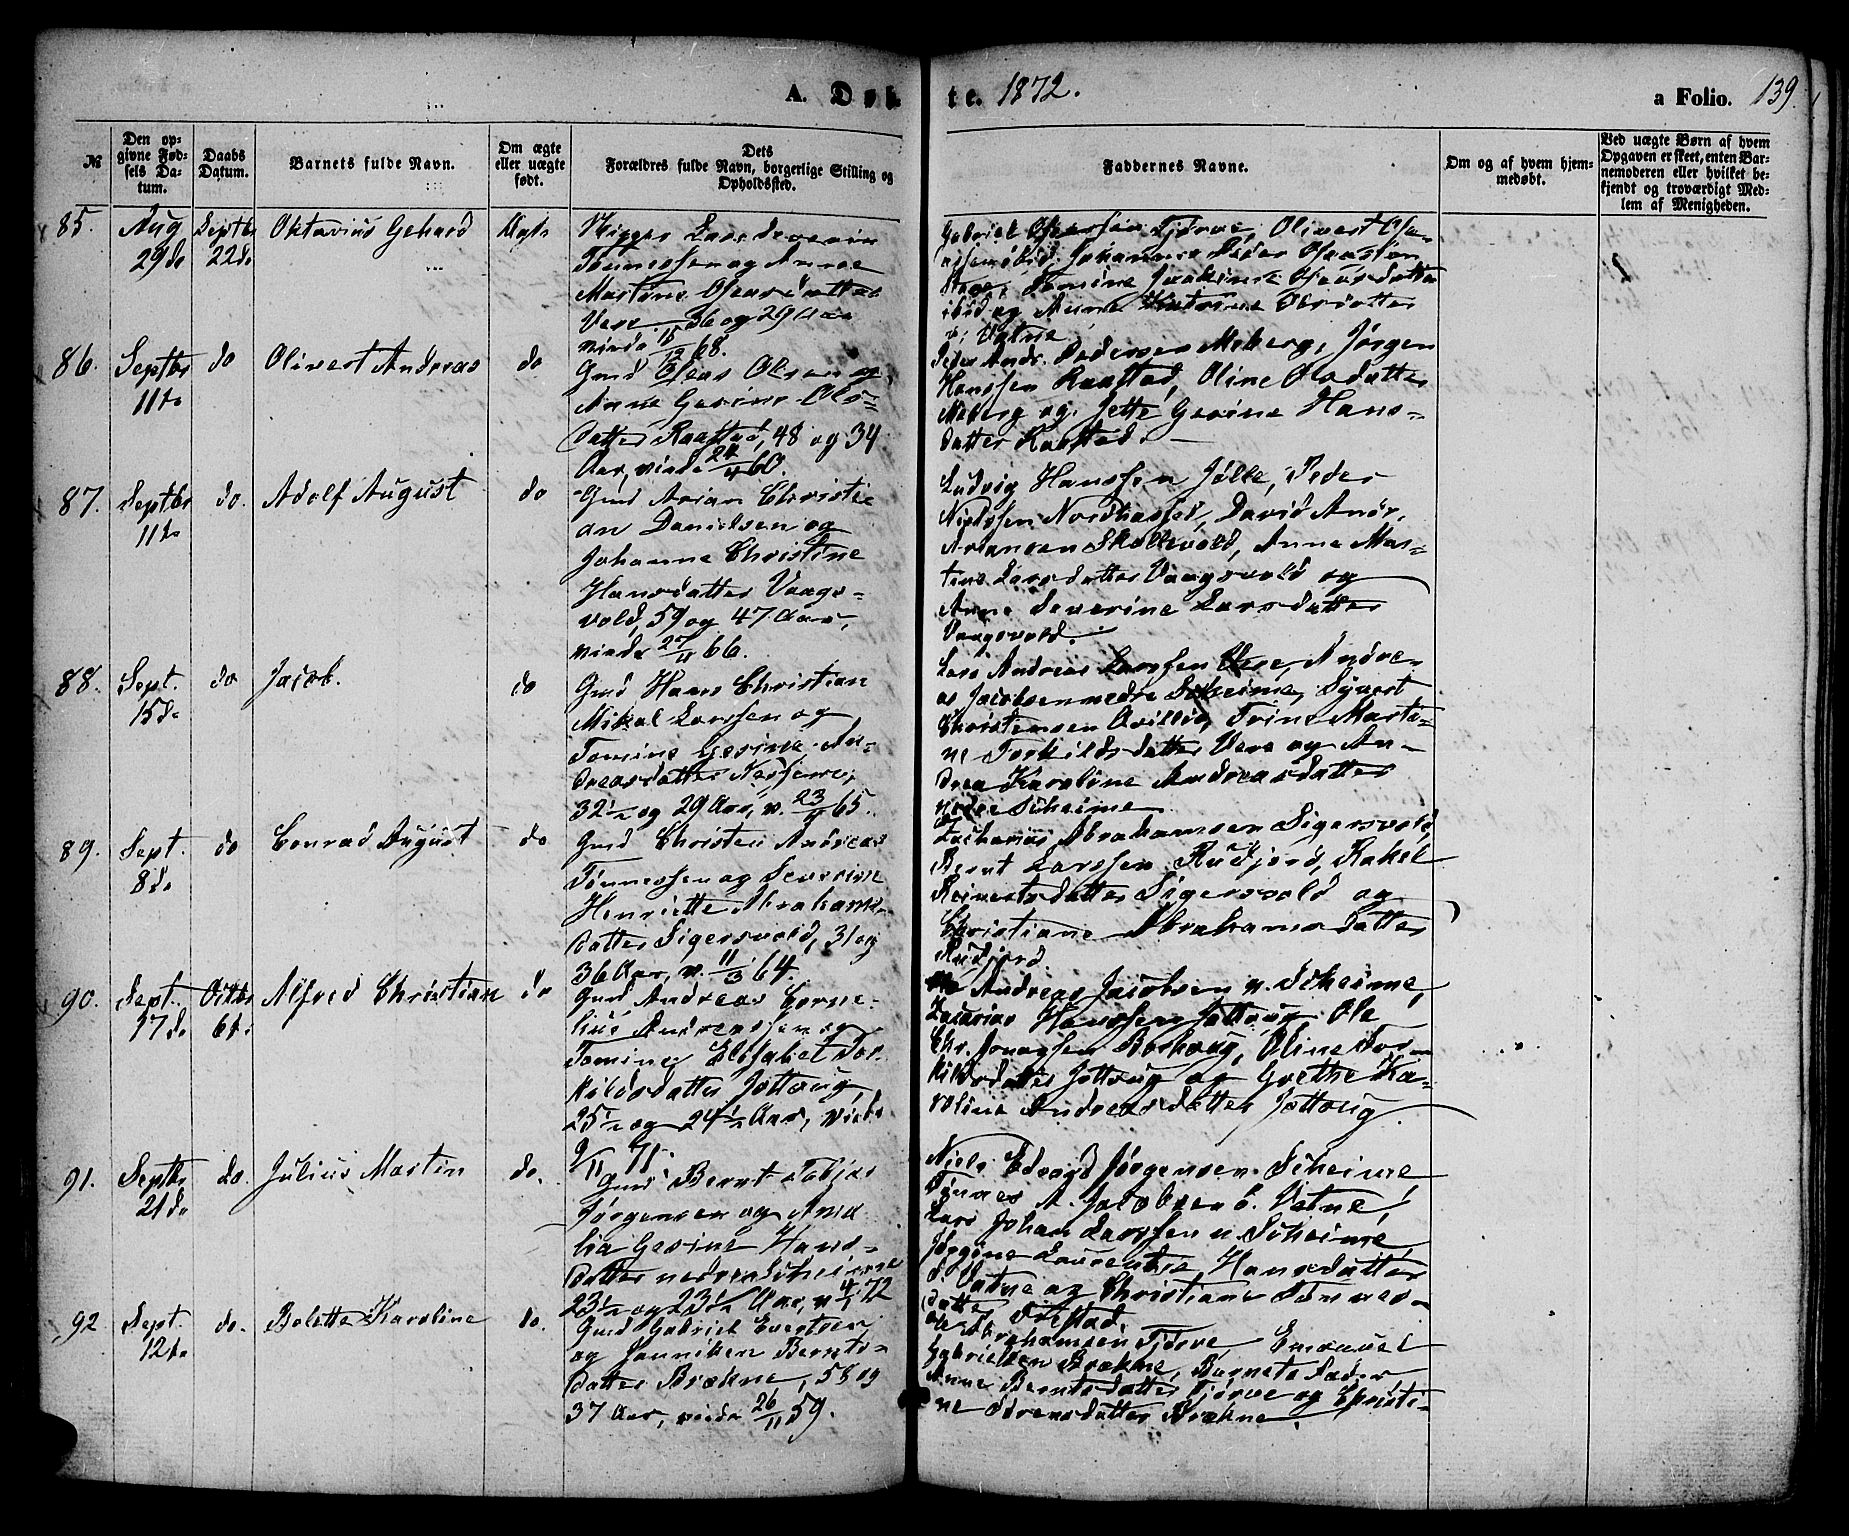 A. Døb
te. 1872.
a Folio. 139.
№
Den op-
givne Fød-
sels Da-
tum.
Daabs
Datum.
Barnets fulde Navn.
Om ægte
eller uægte
født.
Dets
Forældres fulde Navn, borgerlige Stilling og
Opholdssted.
Faddernes Navne.
Om og af hvem hjem-
medøbt.
Ved uægte Børn af hvem
Opgaven er skeet, enten Bar-
nemoderen eller hvilket be-
kjendt og troværdigt Med-
lem af Menigheden.
85. Aug 29de
Septbr 22de
Oktavius Gehard
Ægte
Lars Severin
Tønnessen og Anne
Martine Osearsdatter
Vere 36 og 29 Aar
viede 68.
Gabriel Tjørve, Olivert
Johannes Peder
Tomine
ibid og Anne Katrine Olsdatter
Vatne
86. Septbr 11te
do
Olivert Andreas
do
Gmd Oseas Olsen og
Anne Gesine Ols-
datter Raastad, 48 og 34
Aar, viede 24/4 60.
Peder Andr. Pedersen Moberg, Jørgen
Hanssen Raastad, Oline Olsdatter
Moberg og Jette Gesine Hans-
datter Raastad.
87. Septbr 11te
do.
Adolf August
do
Gmd Arian Christi-
an Danielsen og
Johanne Christine
Hansdatter Vaags-
vold, 59 og 47 Aar,
viede 27/11 66.
Ludvig Hanssen Jølle, Peder
Nielssen Nordhassel, David Andr.
Ariansen Skollevold, Anne Mar-
tine Larsdatter Vaagsvold og
Anne Severine Larsdatter
Vaagsvold.
88. Sept. 15de
do
Jacob.
do
Gmd Hans Christian
Mikal Larssen og
Tomine Gesine An-
dreasdatter
32½ og 29 Aar, v. 23/11 65.
Lars Andreas Larssen Vere, Andre-
as Jacobsen nedre Skeime, Syvert
Christensen Qvillio, Trine Marti-
ne Torkildsdatter Vere og An-
drea Karoline Andreasdatter
nedre Skeime
89. Sept. 8de
do
Conrad August
do
Gmd Christen Andreas
Tønnessen og Severine
Henriette Abrahams-
datter Sigersvold, 31 og
36 Aar, v. 11/3 64.
Zacharias Abrahamsen Sigersvold,
Bernt Larssen Rudjord, Rakel
Reinertsdatter Sigersvold og
Christiane Abrahamsdatter
Rudjord
90. Sept. 17de
Octbr 6te
Alfred Christian
do
Gmd Andreas Corne-
lius Andreassen og
Tomine Elisabet Tor-
kildsdatter Jøttoug,
25½ og 24½ Aar, viede
9/11 71.
Andreas Jacobsen n. Skeime,
Zacarias Hanssen Jøttoug, Ole
Chr. Jonassen Borhoug, Oline Tor-
kildsdatter Jøttoug og Grethe Ka-
roline Andreasdatter Jøttoug.
91. Septbr 21de
do.
Julius Martin
do.
Gmd Bernt Tobias
Jørgensen og Ama-
lia Gesine Hans-
datter nedre Skeime
23½ og 23½ Aar, v 4/1 72
Niels Edvard Jørgensen Skeime
Tønnes A. Jacobsen ö. Vatne,
Lars Johan Larssen n. Skeime
Jørgine Laurentse Hansdatter
ö. Vatne og Christiane Tønnes-
datter Ørestad.
92 Sept. 12te
do.
Bolette Karoline
do.
Gmd Gabriel Evertsen
og Janniken Bernts-
datter Brækne, 58 og
37 Aar, viede 26/11 59.
Abrahamsen Tjørve, Emanuel
Gabrielsen Brækne, Barnets Fader
Anne Berntsdatter Tjørve og Christi-
ne Sørensdatter Brækne.